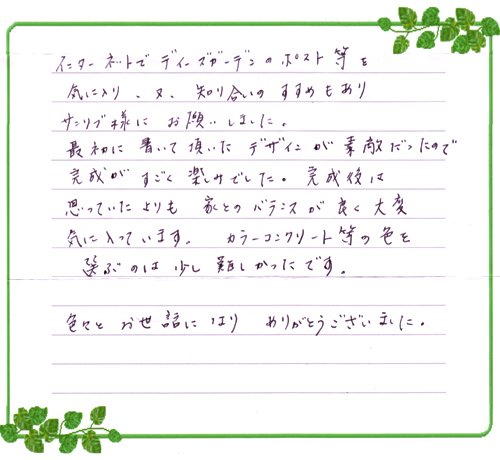 インターネットで ディーズガーデンの ポスト等を
気に入り、又、知り合いの すすめもあり
サンリブ様に お願いしました。
最初に 書いて頂いた デザインが 素敵だったので
完成が すごく 楽しみでした。 完成後は
思っていたよりも 家との バランスが 良く 大変
気に入っています。 カラーコンクリート等の 色を
選ぶのは 少し 難しかったです。
色々と お世話になり ありがとうございました。